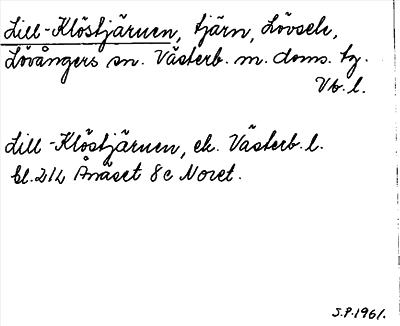 Lill-Klöstjärnen, tjärn, Lövsele,
Lövångers sn. Västerb. m. doms. tg.
Vb. l.
Lill-Klöstjärnen, ek. Västerb. l.
bl. 21L Ånäset 8c Noret.
S.P. 1961.